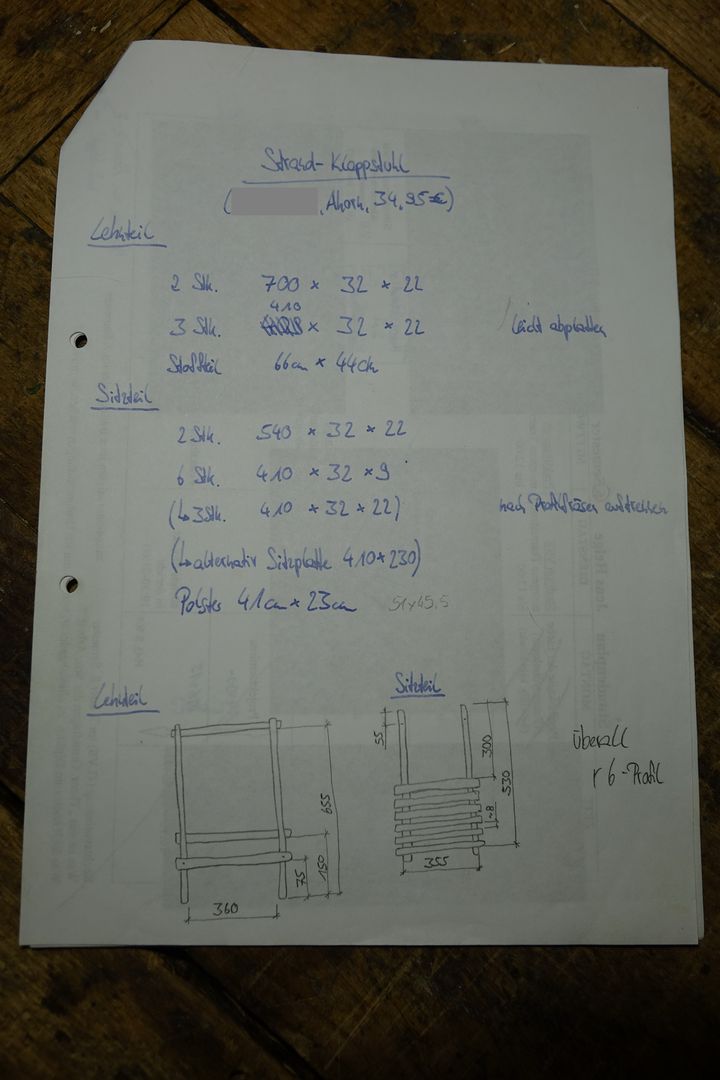 Strand-Klappstuhl
( , Ahorn, 34,95€)
Lehnteil
2 Stk. 700 × 32 × 22
410
3 Stk. × 32 × 22 leicht abplatten
Stoffteil 66cm × 44cm
Sitzteil
2 Stk. 540 × 32 × 22
6 Stk. 410 × 32 × 9
(↳ 3 Stk. 410 × 32 × 22) nach Profilfräsen auftrennen
(↳ alternativ Sitzplatte 410×230)
Polster 41cm × 23cm 51×45,5
Lehnteil
Sitzteil
655
150
75
360
55
300
530
~8
355
Überall
r 6-Profil